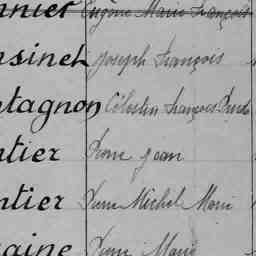 nnier Eugène Marie François
nsinet Joseph François
ntagnon Célestin François
ntier Pierre Jean
ntier Pierre Michel Marie
aine Pierre Marie